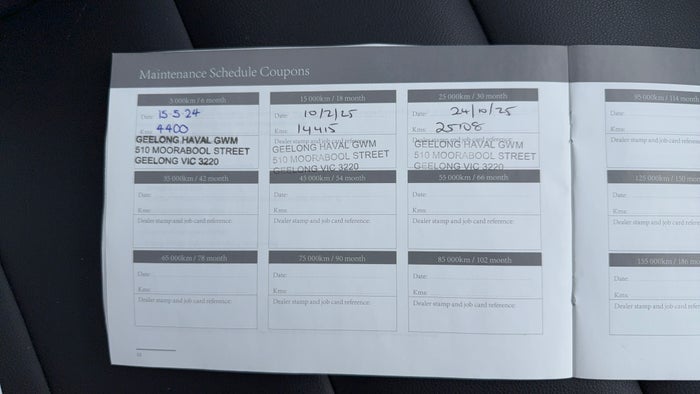 Maintenance Schedule Coupons
5 000km / 6 month
15 000km / 18 month
25 000km / 30 month
95 000km / 114 month
Date: 15-5-24
Date: 10/2/25
Date: 24/10/25
Date:
Kms: 4400
Kms: 14415
Kms: 25108
Kms:
GEELONG HAVAL GWM
510 MOORABOOL STREET
GEELONG VIC 3220
Dealer stamp and job card reference:
GEELONG HAVAL GWM
510 MOORABOOL STREET
GEELONG VIC 3220
Dealer stamp and job card reference:
GEELONG HAVAL GWM
510 MOORABOOL STREET
GEELONG VIC 3220
Dealer stamp and job card refere
35 000km / 42 month
45 000km / 54 month
55 000km / 66 month
125 000km / 150 mon
Date:
Date:
Date:
Date:
Kms:
Kms:
Kms:
Kms:
Dealer stamp and job card reference:
Dealer stamp and job card reference:
Dealer stamp and job card reference:
Dealer stamp and job card refere
65 000km / 78 month
75 000km / 90 month
85 000km / 102 month
155 000km / 186 mo
Date:
Date:
Date:
Date:
Kms:
Kms:
Kms:
Kms:
Dealer stamp and job card reference:
Dealer stamp and job card reference:
Dealer stamp and job card reference:
Dealer stamp and job card refere